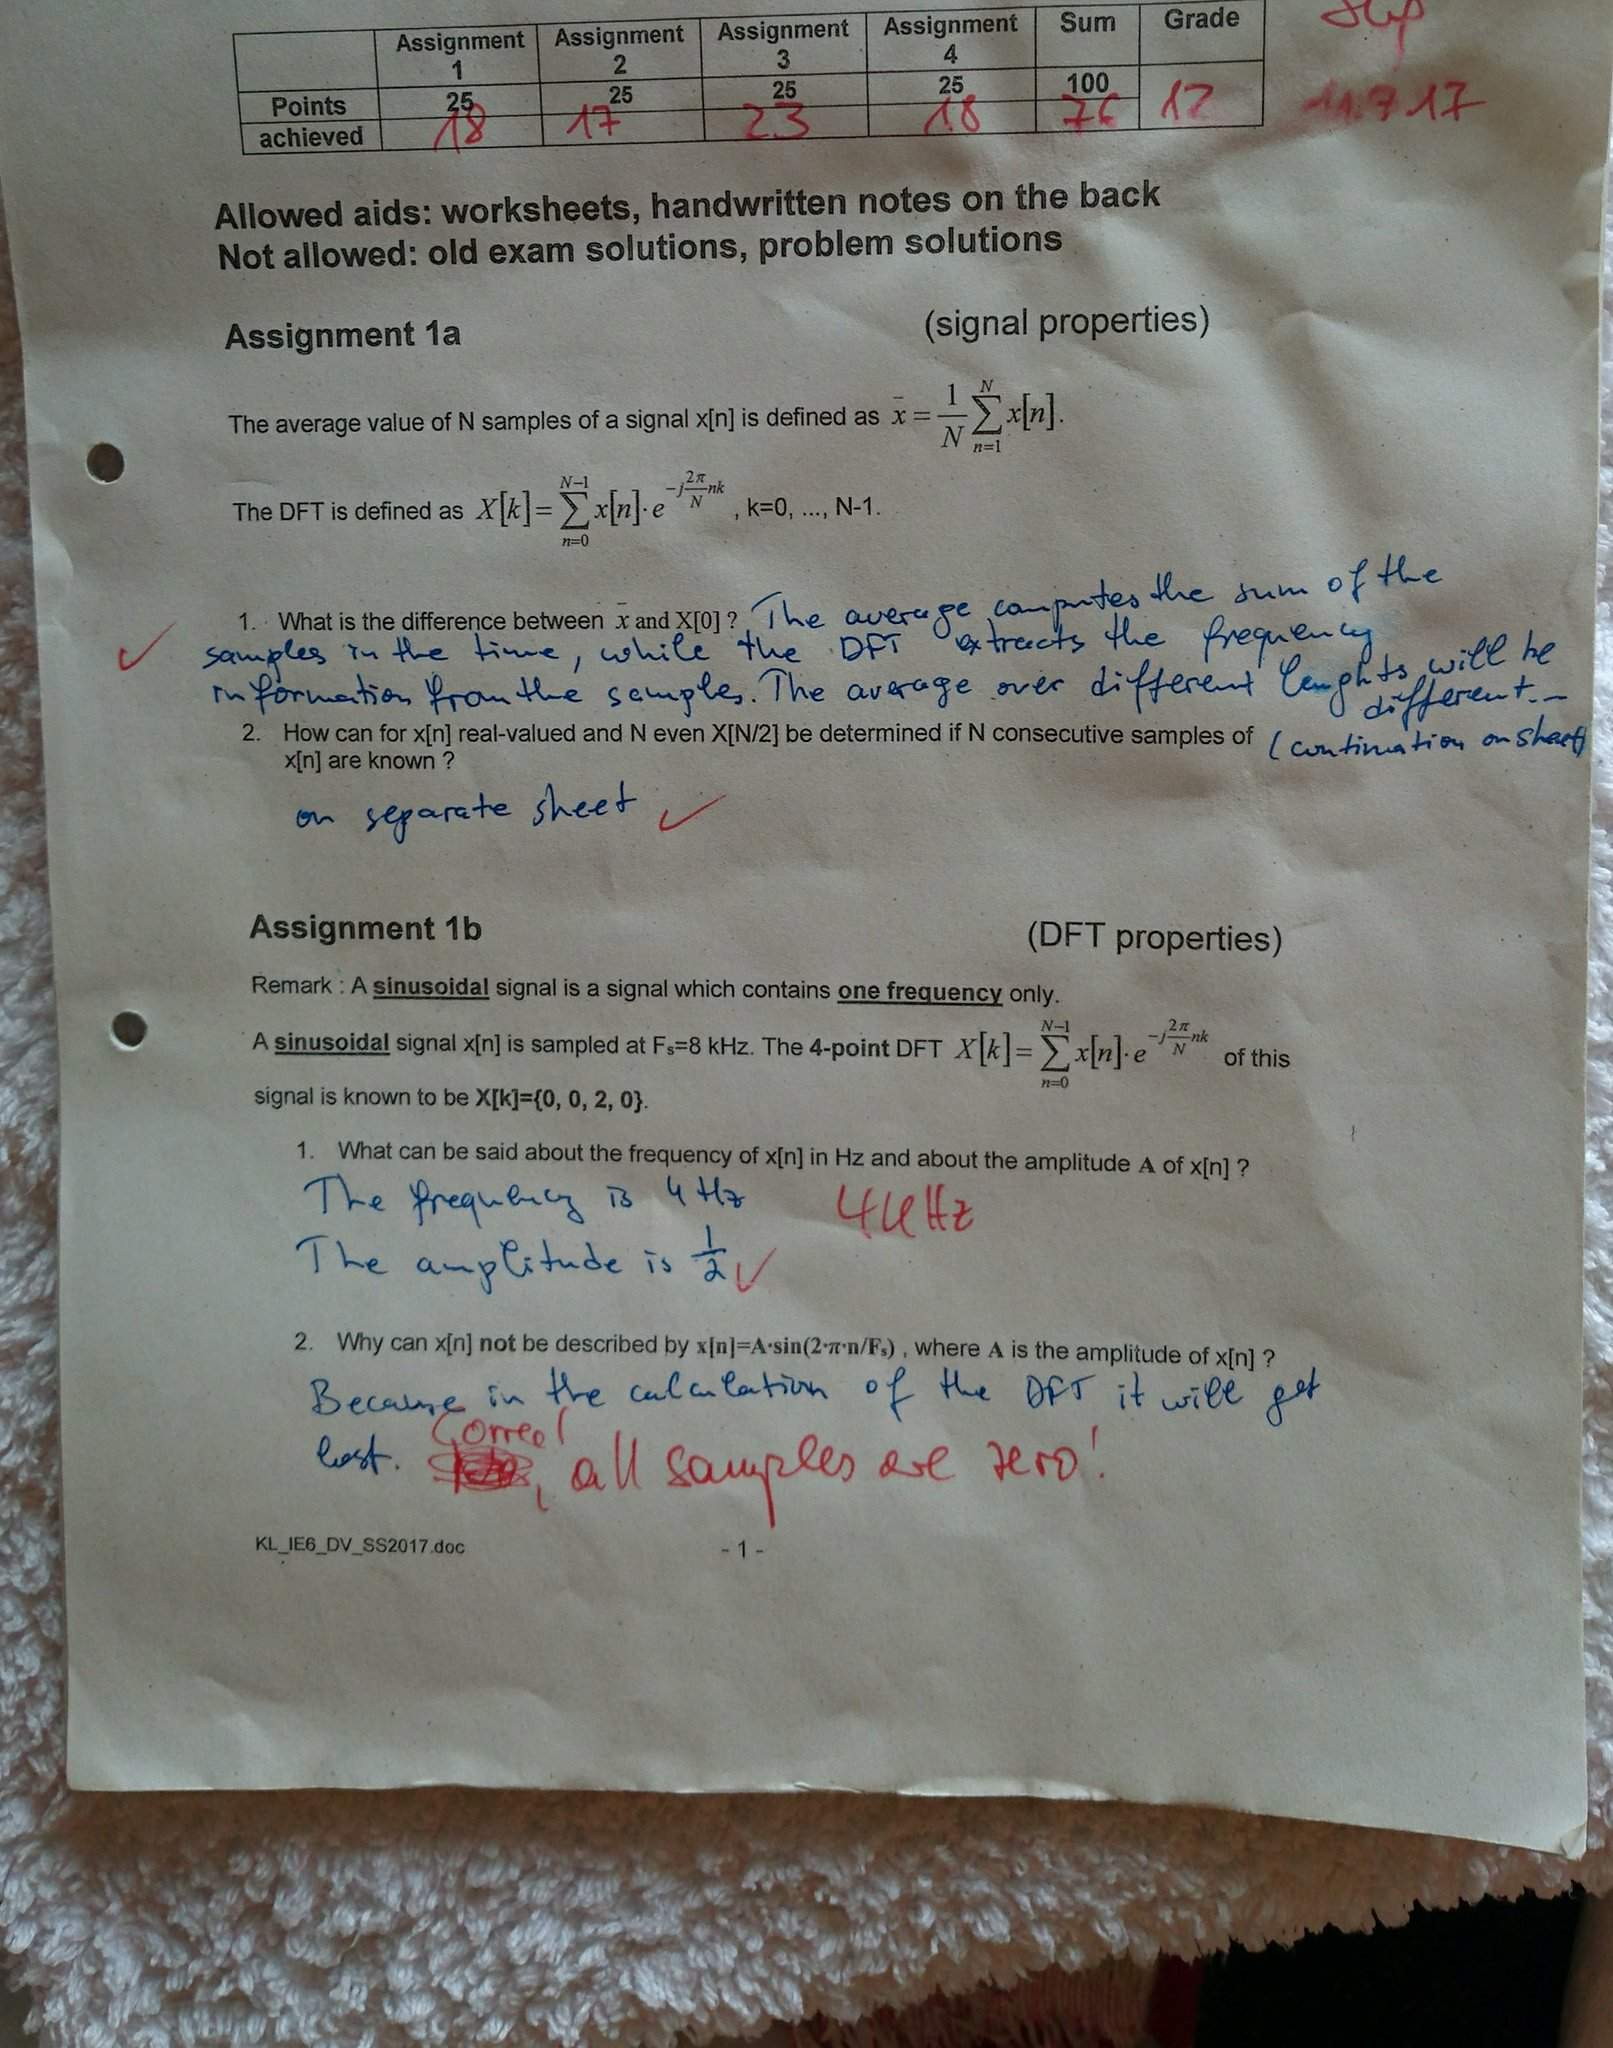 Assignment 1 Assignment 2 Assignment 3 Assignment 4 Sum Grade
Points 25 25 25 25 100
achieved 18 17 23 18 76 12
17
Allowed aids: worksheets, handwritten notes on the back
Not allowed: old exam solutions, problem solutions
Assignment 1a (signal properties)
The average value of N samples of a signal x[n] is defined as x̄ = 1/N ∑_{n=1}^{N} x[n].
The DFT is defined as X[k] = ∑_{n=0}^{N-1} x[n]·e^{-j(2π/N)nk} , k=0, ..., N-1.
1. What is the difference between x̄ and X[0] ? The average computes the sum of the
samples in the time, while the DFT extracts the frequency
information from the samples. The average over different lenghts will be
different. -
2. How can for x[n] real-valued and N even X[N/2] be determined if N consecutive samples of (continuation on sheet)
x[n] are known ?
on separate sheet ✓
Assignment 1b (DFT properties)
Remark : A sinusoidal signal is a signal which contains one frequency only.
A sinusoidal signal x[n] is sampled at Fs=8 kHz. The 4-point DFT X[k] = ∑_{n=0}^{N-1} x[n]·e^{-j(2π/N)nk} of this
signal is known to be X[k]={0, 0, 2, 0}.
1. What can be said about the frequency of x[n] in Hz and about the amplitude A of x[n] ?
The frequency is 4 Hz 4kHz
The amplitude is 1/2 ✓
2. Why can x[n] not be described by x[n]=A·sin(2·π·n/Fs) , where A is the amplitude of x[n] ?
Because in the calculation of the DFT it will get
lost. Correct, all samples are zero!
KL_IE6_DV_SS2017.doc - 1 -